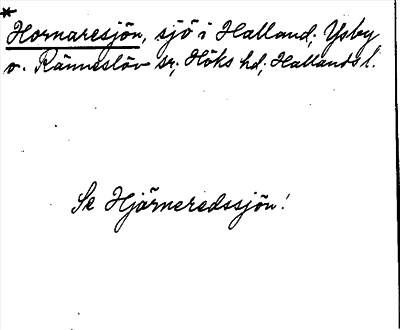 *
Hornaresjön, sjö i Halland; Ysby
o. Ränneslöv sr; Höks hd; Hallands l.
Se Hjärneredssjön!